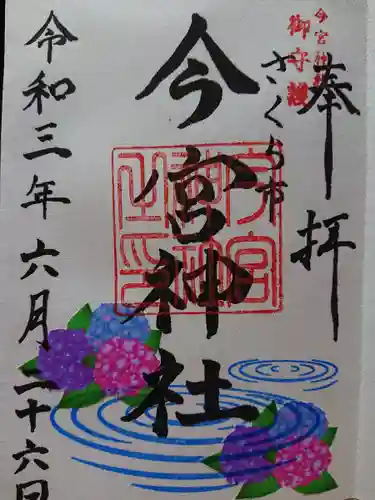 奉拝
今宮神社
御守護
さくら市
今宮神社
令和三年六月二十六日